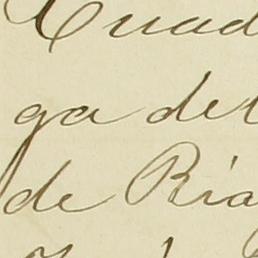 Cuad
ga del
de Ria